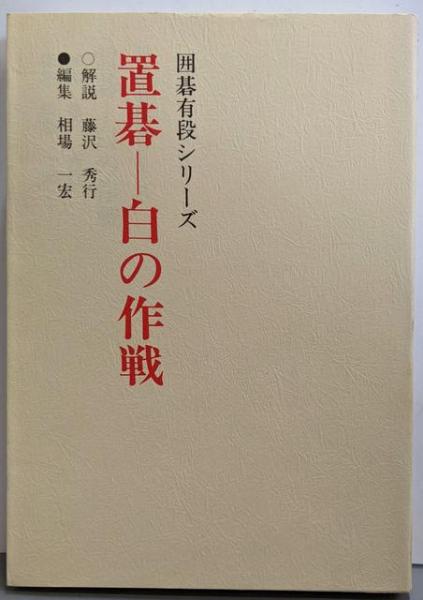 囲碁有段シリーズ
置碁―白の作戦
○解説 藤沢 秀行
●編集 相場 一宏